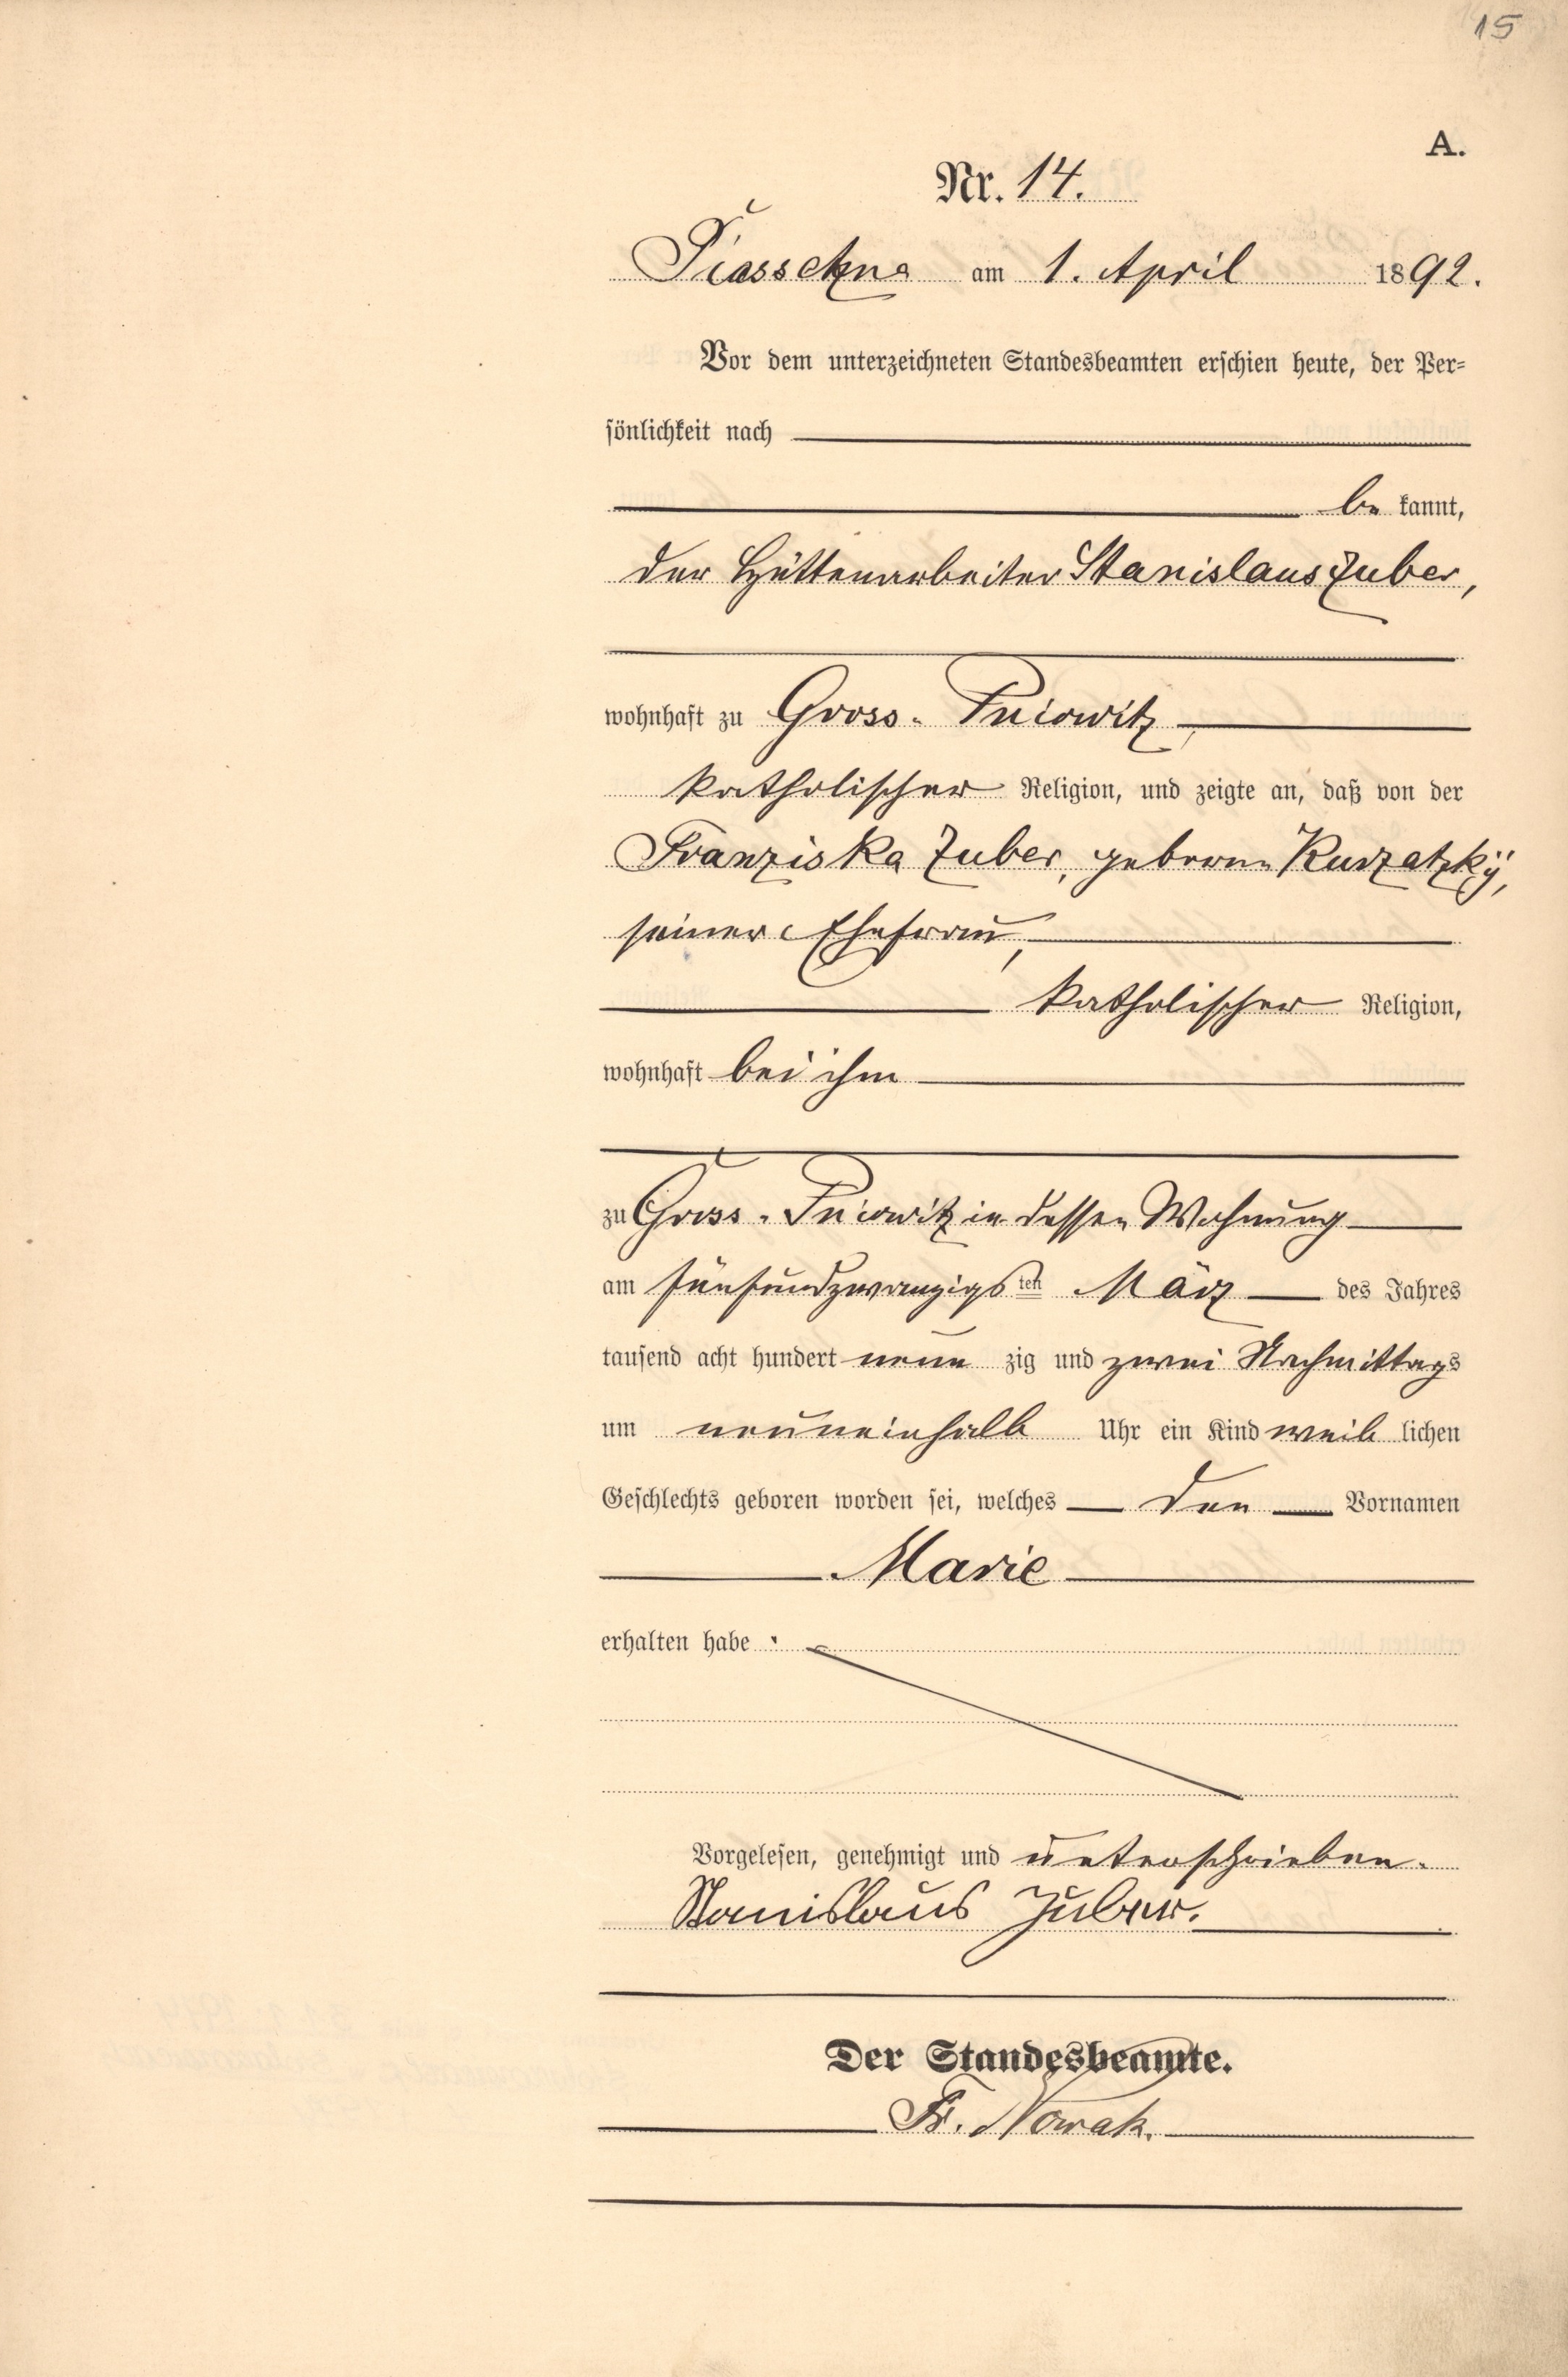 15
A.
Nr. 14.
Piasschna am 1. April 1892.
Vor dem unterzeichneten Standesbeamten erschien heute, der Per-
sönlichkeit nach
be kannt,
der Hüttenarbeiter Stanislaus Zuber,
wohnhaft zu Gross-Pniowitz,
katholischer Religion, und zeigte an, daß von der
Franziska Zuber, geborene Kurzatzky,
seiner Ehefrau,
katholischer Religion,
wohnhaft bei ihm
zu Gross-Pniowitz in dessen Wohnung
am fünfundzwanzigsten März des Jahres
tausend acht hundert neun zig und zwei Nachmittags
um neuneinhalb Uhr ein Kind weib lichen
Geschlechts geboren worden sei, welches den Vornamen
Marie
erhalten habe.
Vorgelesen, genehmigt und unterschrieben.
Stanislaus Zuber.
Der Standesbeamte.
Fr. Nowak.